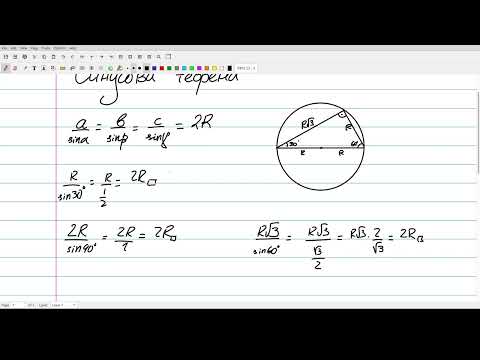 Синусова теорема
a/sinα = b/sinβ = c/sinγ = 2R
R√3
R
30°
60°
R
R
R/sin30° = R/(1/2) = 2R□
2R/sin90° = 2R/1 = 2R□
R√3/sin60° = R√3/(√3/2) = R√3 · 2/√3 = 2R□